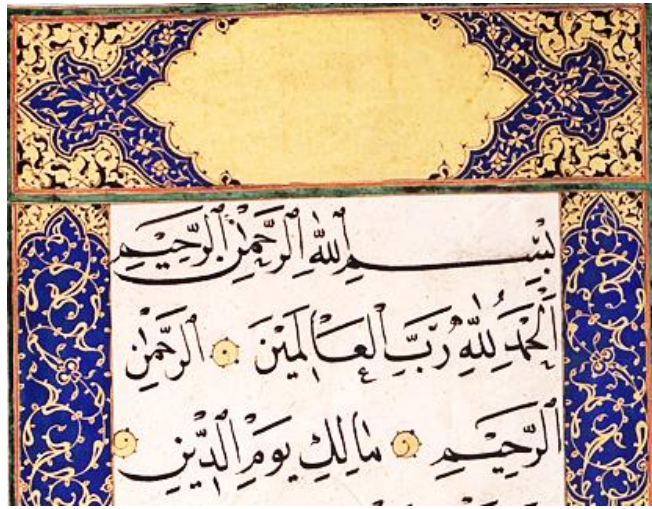 بِسْمِ اللهِ الرَّحْمٰنِ الرَّحِيمِ
اَلْحَمْدُ لِلّٰهِ رَبِّ الْعَالَمِينَ ۝ الرَّحْمٰنِ
الرَّحِيمِ ۝ مَالِكِ يَوْمِ الدِّينِ ۝